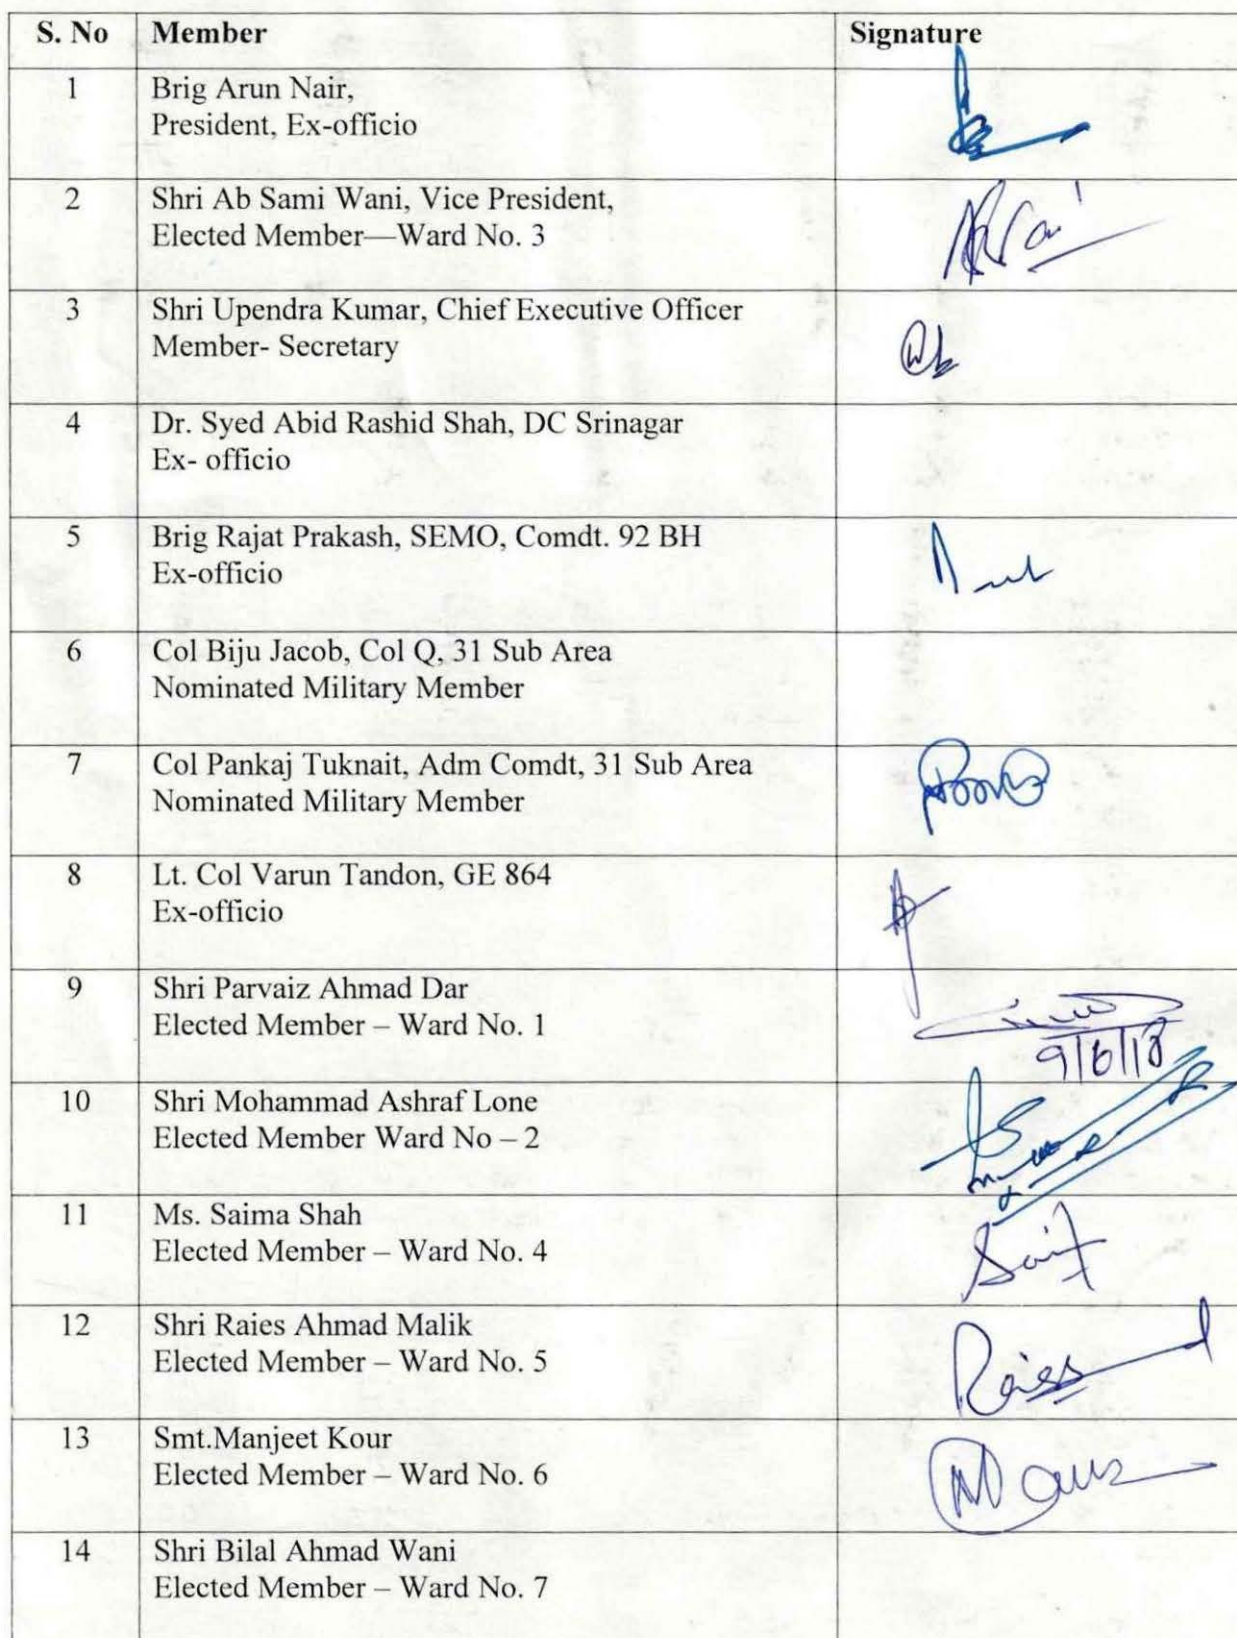 S. No Member Signature
1 Brig Arun Nair,
President, Ex-officio
2 Shri Ab Sami Wani, Vice President,
Elected Member—Ward No. 3
3 Shri Upendra Kumar, Chief Executive Officer
Member- Secretary
4 Dr. Syed Abid Rashid Shah, DC Srinagar
Ex- officio
5 Brig Rajat Prakash, SEMO, Comdt. 92 BH
Ex-officio
6 Col Biju Jacob, Col Q, 31 Sub Area
Nominated Military Member
7 Col Pankaj Tuknait, Adm Comdt, 31 Sub Area
Nominated Military Member
8 Lt. Col Varun Tandon, GE 864
Ex-officio
9 Shri Parvaiz Ahmad Dar
Elected Member – Ward No. 1
9/6/18
10 Shri Mohammad Ashraf Lone
Elected Member Ward No – 2
11 Ms. Saima Shah
Elected Member – Ward No. 4
12 Shri Raies Ahmad Malik
Elected Member – Ward No. 5
Raies
13 Smt.Manjeet Kour
Elected Member – Ward No. 6
14 Shri Bilal Ahmad Wani
Elected Member – Ward No. 7